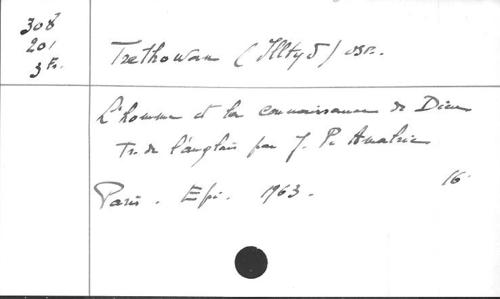 308
201
3 Fr.
Trethowan (Illtyd) OSB.
L'homme et la connaissance de Dieu
Tr. de l'anglais par J. P. Amalric
Paris. Epi. 1963. 16°